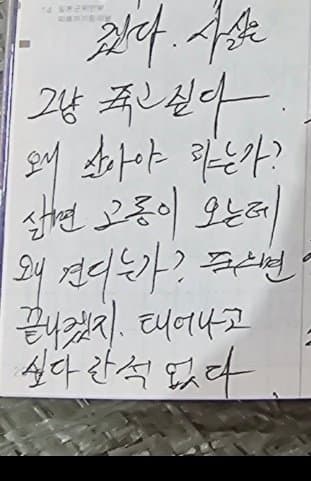 겠다. 사실은
그냥 죽고 싶다.
왜 살아야 하는가?
살면 고통이 오는데
왜 견디는가? 죽으면
끝나겠지. 태어나고
싶다 한 적 없다